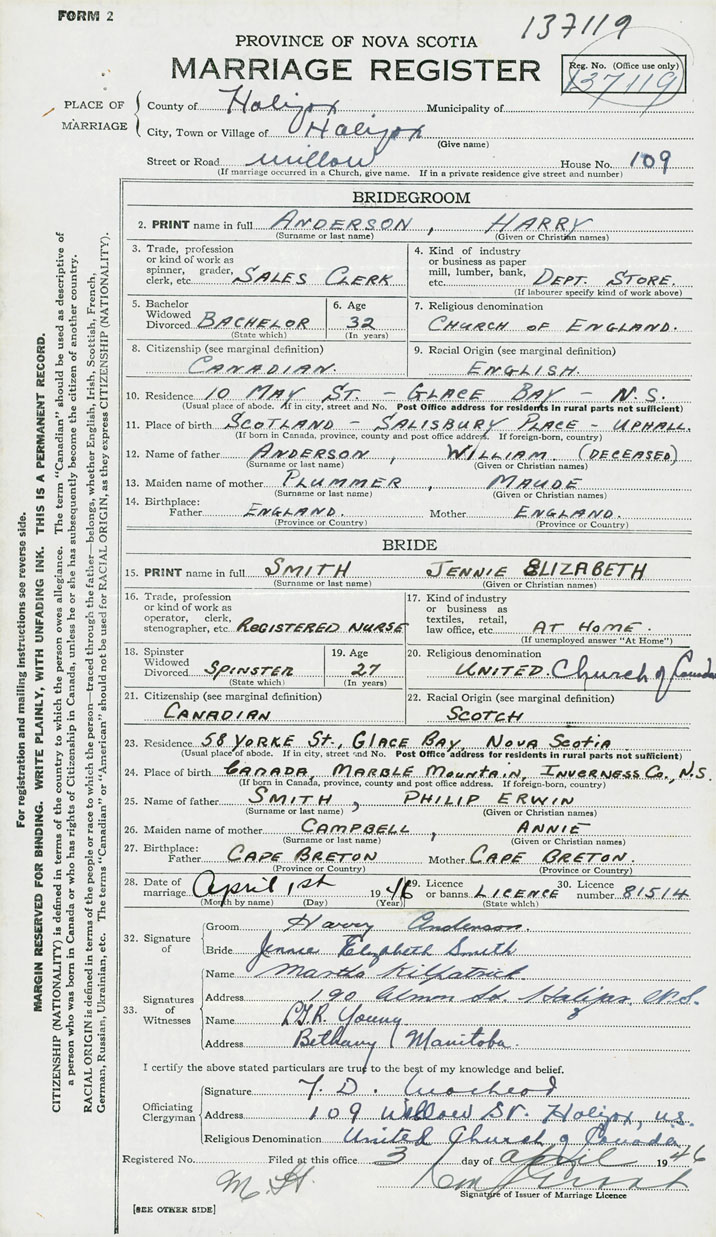 FORM 2
137119
PROVINCE OF NOVA SCOTIA
MARRIAGE REGISTER
Reg. No. (Office use only)
137119
PLACE OF MARRIAGE
County of Halifax Municipality of
City, Town or Village of Halifax
(Give name)
Street or Road Willow House No. 109
(If marriage occurred in a Church, give name. If in a private residence give street and number)
BRIDEGROOM
2. PRINT name in full ANDERSON, HARRY
(Surname or last name) (Given or Christian names)
3. Trade, profession or kind of work as spinner, grader, clerk, etc. SALES CLERK
4. Kind of industry or business as paper mill, lumber, bank, etc. DEPT. STORE.
(If labourer specify kind of work above)
5. Bachelor Widowed Divorced BACHELOR
(State which)
6. Age 32
(In years)
7. Religious denomination
CHURCH OF ENGLAND.
8. Citizenship (see marginal definition)
CANADIAN.
9. Racial Origin (see marginal definition)
ENGLISH.
10. Residence 10 MAY ST. - GLACE BAY - N.S.
(Usual place of abode. If in city, street and No. Post Office address for residents in rural parts not sufficient)
11. Place of birth SCOTLAND - SALISBURY PLACE - UPHALL.
(If born in Canada, province, county and post office address. If foreign-born, country)
12. Name of father ANDERSON, WILLIAM. (DECEASED)
(Surname or last name) (Given or Christian names)
13. Maiden name of mother PLUMMER, MAUDE
(Surname or last name) (Given or Christian names)
14. Birthplace:
Father ENGLAND. Mother ENGLAND.
(Province or Country) (Province or Country)
BRIDE
15. PRINT name in full SMITH JENNIE ELIZABETH
(Surname or last name) (Given or Christian names)
16. Trade, profession or kind of work as operator, clerk, stenographer, etc. REGISTERED NURSE
17. Kind of industry or business as textiles, retail, law office, etc. AT HOME.
(If unemployed answer "At Home")
18. Spinster Widowed Divorced SPINSTER
(State which)
19. Age 27
(In years)
20. Religious denomination
UNITED Church of Canada
21. Citizenship (see marginal definition)
CANADIAN
22. Racial Origin (see marginal definition)
SCOTCH
23. Residence 58 YORKE ST., GLACE BAY, NOVA SCOTIA
(Usual place of abode. If in city, street and No. Post Office address for residents in rural parts not sufficient)
24. Place of birth CANADA, MARBLE MOUNTAIN, INVERNESS CO., N.S.
(If born in Canada, province, county and post office address. If foreign-born, country)
25. Name of father SMITH, PHILIP ERWIN
(Surname or last name) (Given or Christian names)
26. Maiden name of mother CAMPBELL, ANNIE
(Surname or last name) (Given or Christian names)
27. Birthplace:
Father CAPE BRETON Mother CAPE BRETON.
(Province or Country) (Province or Country)
28. Date of marriage April 1st 1946
(Month by name) (Day) (Year)
29. Licence or banns LICENCE
(State which)
30. Licence number 81514
32. Signature of
Groom Harry Anderson.
Bride Jennie Elizabeth Smith
33. Signatures of Witnesses
Name Martha Kilpatrick
Address 190 Almon St. Halifax, N.S.
Name Young
Address Bethany Manitoba.
I certify the above stated particulars are true to the best of my knowledge and belief.
Officiating Clergyman
Signature
Address 109 Willow St. Halifax, N.S.
Religious Denomination United Church of Canada
Registered No. Filed at this office 3 day of April 1946
Signature of Issuer of Marriage Licence
[SEE OTHER SIDE]
For registration and mailing instructions see reverse side.
MARGIN RESERVED FOR BINDING. WRITE PLAINLY, WITH UNFADING INK. THIS IS A PERMANENT RECORD.
CITIZENSHIP (NATIONALITY) is defined in terms of the country to which the person owes allegiance. The term "Canadian" should be used as descriptive of
a person who was born in Canada or who has rights of Citizenship in Canada, unless he or she has subsequently become the citizen of another country.
RACIAL ORIGIN is defined in terms of the people or race to which the person—traced through the father—belongs, whether English, Irish, Scottish, French,
German, Russian, Ukrainian, etc. The terms "Canadian" or "American" should not be used for RACIAL ORIGIN, as they express CITIZENSHIP (NATIONALITY).